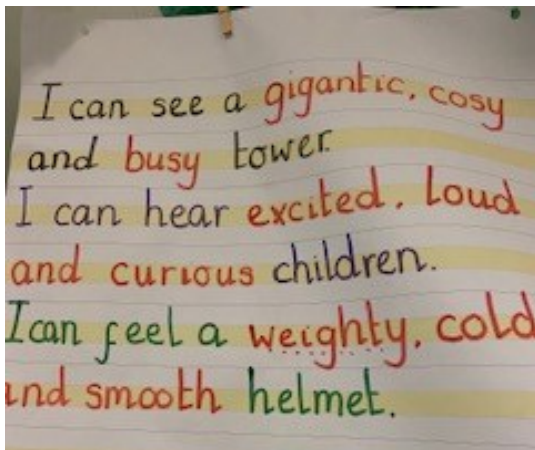 I can see a gigantic, cosy
and busy tower.
I can hear excited, loud
and curious children.
I can feel a weighty, cold
and smooth helmet.